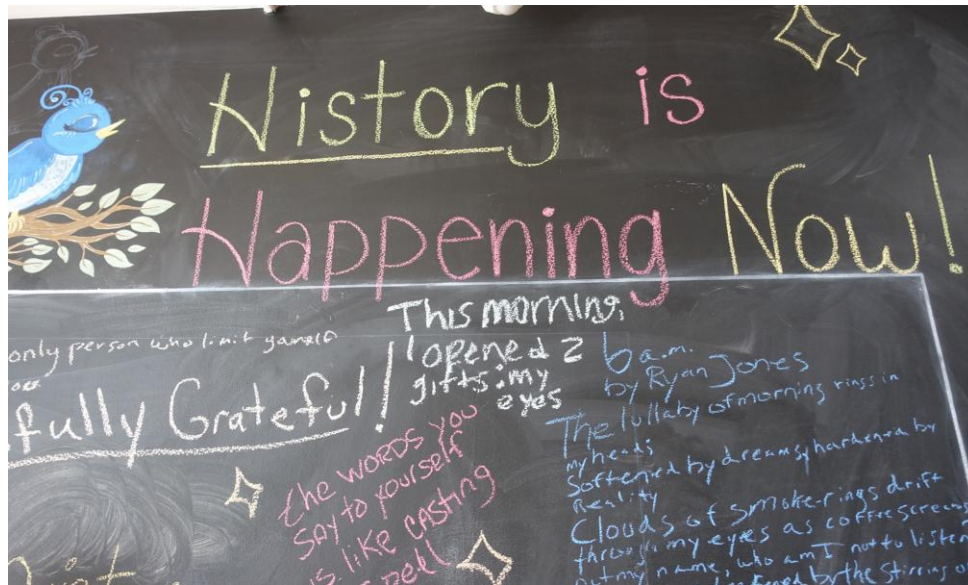 History is
Happening Now!
only person who limit
fully Grateful!
This morning,
I opened 2
gifts: my
eyes
the words you
SAY to yourself
is like CASTING
spell
6 a.m.
by Ryan Jones
The lullaby of morning rings in
my heads
Softened by dreams, hardened by
Reality
Clouds of smoke-rings drift
through my eyes as coffee screams
out my name, who am I not to listen
by the stirring o